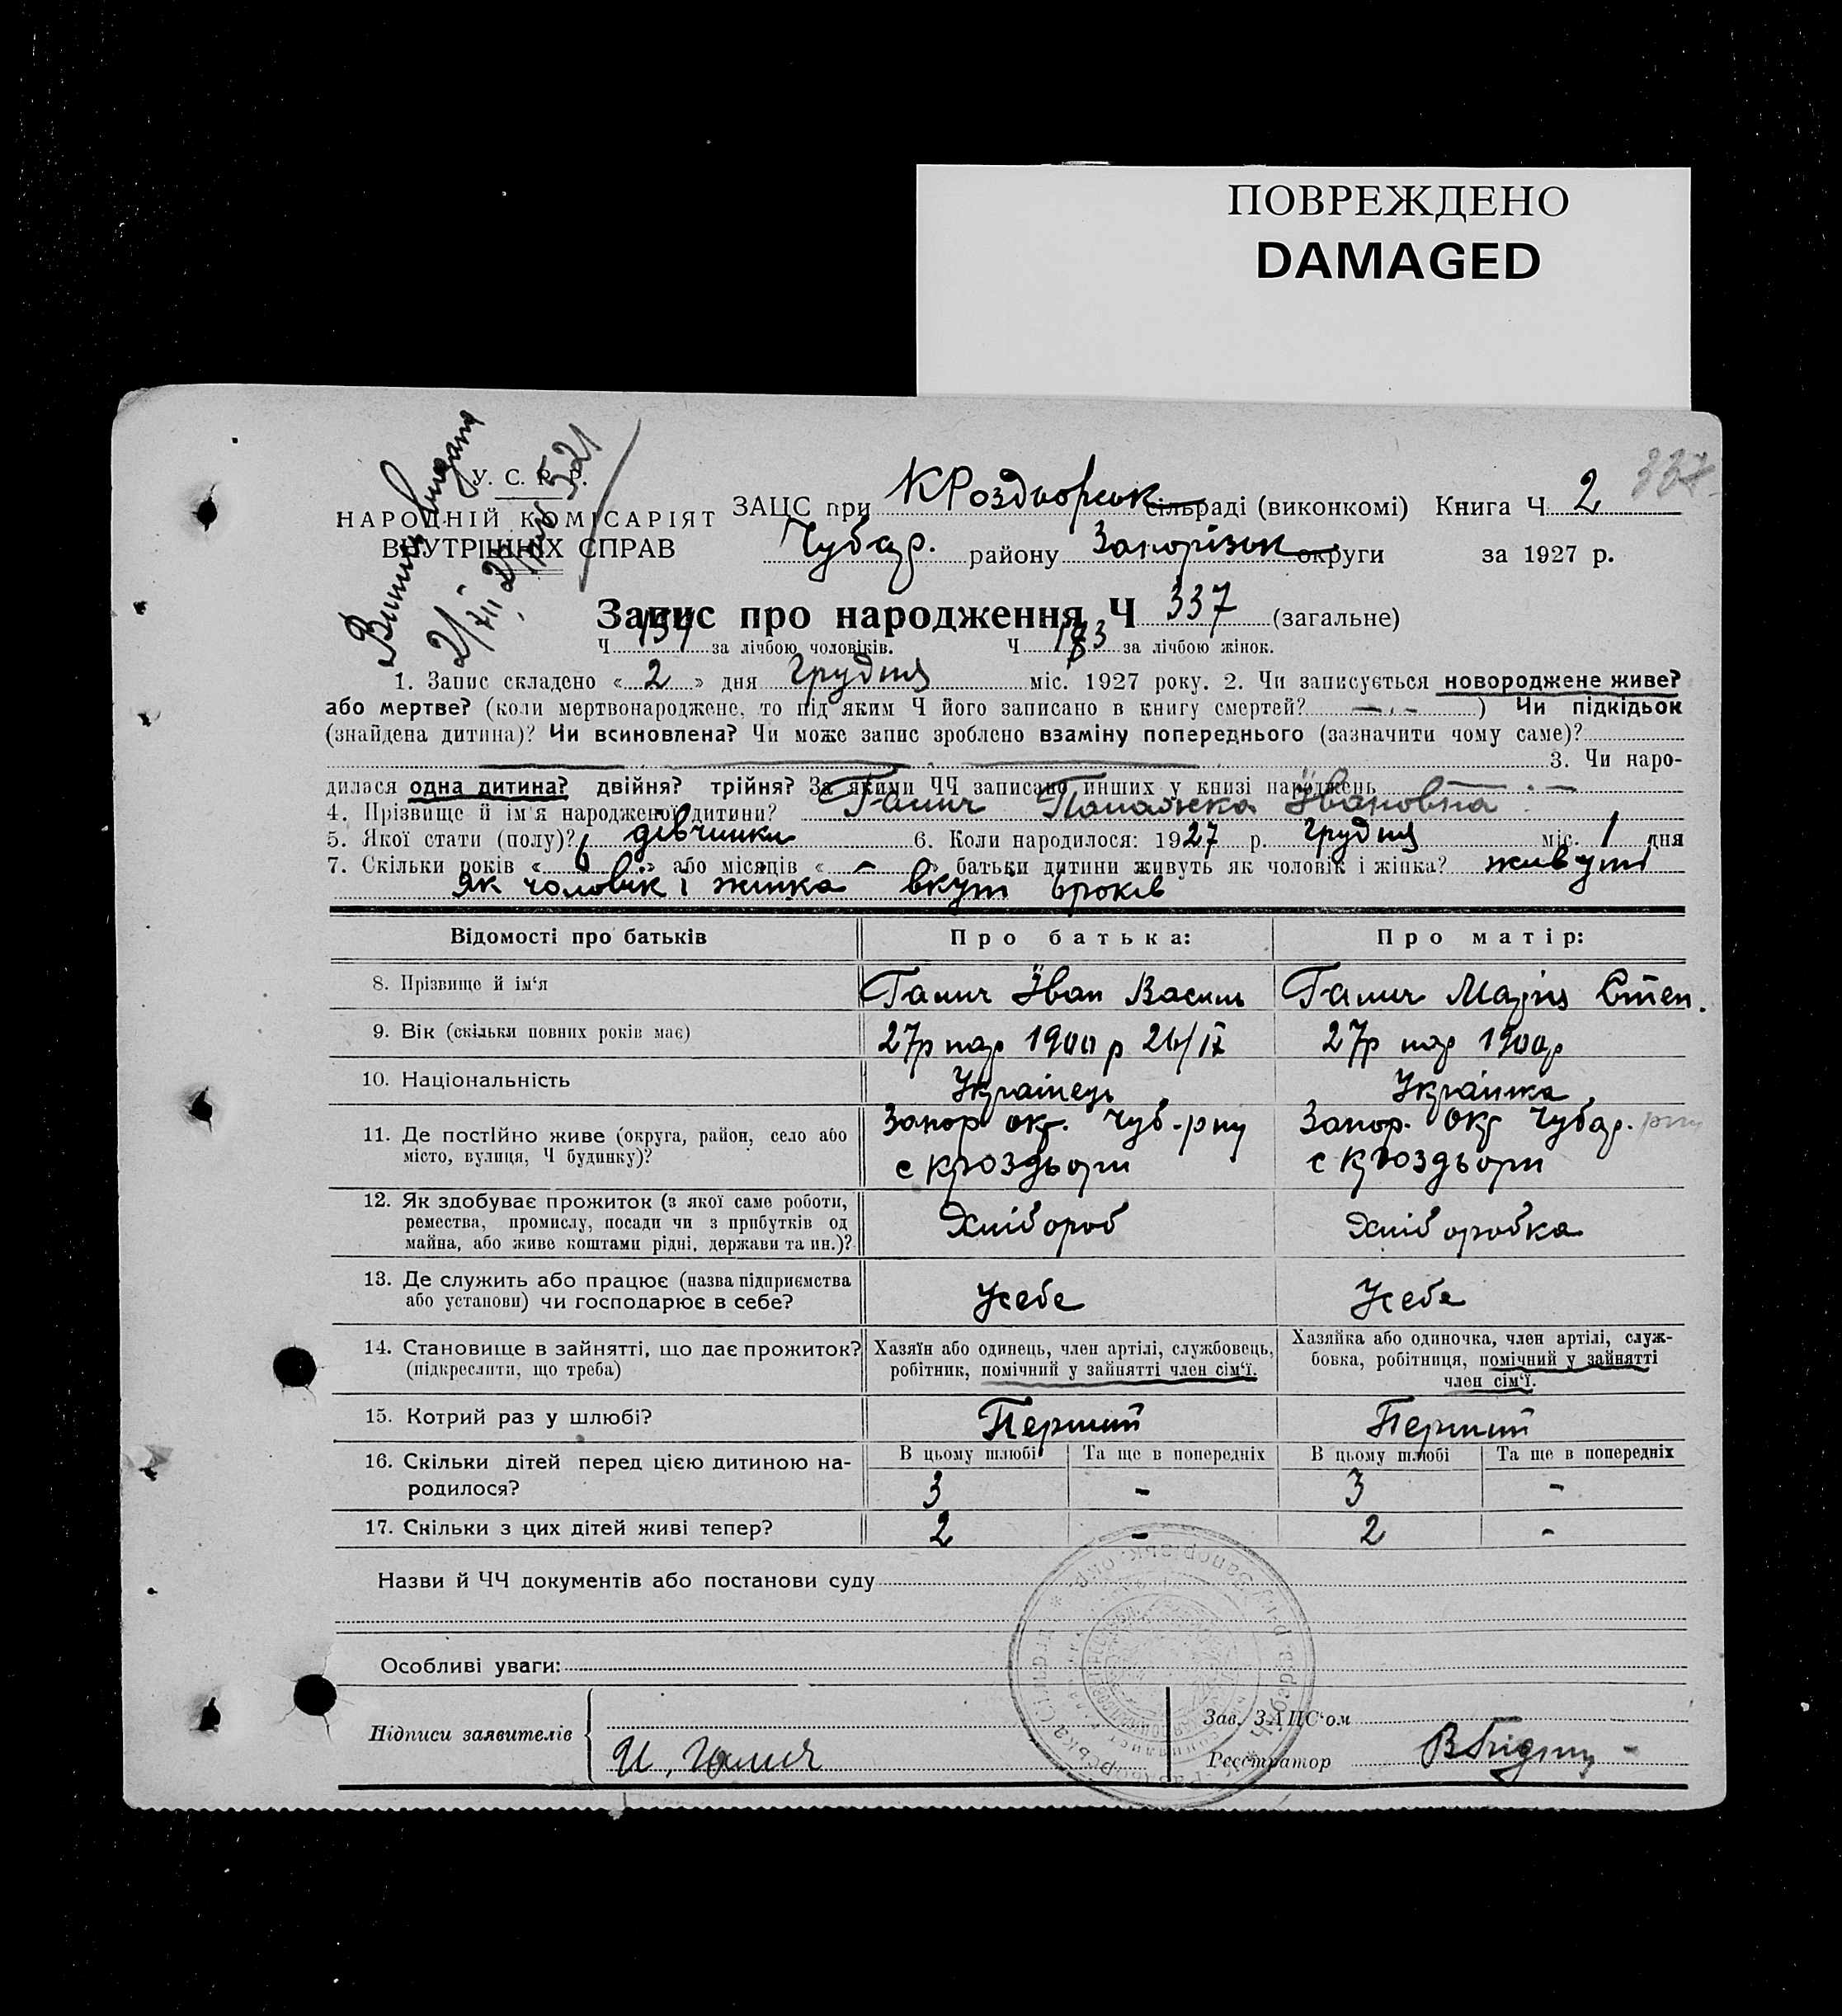 ПОВРЕЖДЕНО
DAMAGED
337
Витяг видано
21/VII 27 521
У. С. Р. Р.
НАРОДНІЙ КОМІСАРІЯТ
ВНУТРІШНІХ СПРАВ
ЗАЦС при КРоздорськ сільраді (виконкомі) Книга Ч 2
Чубар. району Запорізьк округи за 1927 р.
Запис про народження Ч 337 (загальне)
Ч 154 за лічбою чоловіків. Ч 183 за лічбою жінок.
1. Запис складено «2» дня грудня міс. 1927 року. 2. Чи записується новороджене живе?
або мертве? (коли мертвонароджене, то під яким Ч його записано в книгу смертей? — ) Чи підкідьок
(знайдена дитина)? Чи всиновлена? Чи може запис зроблено взаміну попереднього (зазначити чому саме)?
3. Чи наро-
дилася одна дитина? двійня? трійня? За якими ЧЧ записано инших у книзі народжень —
4. Прізвище й ім'я народженої дитини? Галич Івановна
5. Якої статі (полу)? дівчинки 6. Коли народилося: 1927 р. грудня міс. 1 дня
7. Скільки років «6» або місяців « - » батьки дитини живуть як чоловік і жінка? живуть
як чоловік і жінка вкупі 6 років
Відомості про батьків Про батька: Про матір:
8. Прізвище й ім'я Галич Іван Василь Галич Марія Степ.
9. Вік (скільки повних років має) 27р нар 1900 р 26/IX 27р нар 1900р
10. Національність Українець Українка
11. Де постійно живе (округа, район, село або місто, вулиця, Ч будинку)? Запор окр. Чуб-рну Запор. окр Чубар. рну
с Кроздьори с Кроздьори
12. Як здобуває прожиток (з якої саме роботи,
ремества, промислу, посади чи з прибутків од
майна, або живе коштами рідні, держави та ин.)? Хлібороб Хліборобка
13. Де служить або працює (назва підприємства
або установи) чи господарює в себе? У себе У себе
14. Становище в зайнятті, що дає прожиток?
(підкреслити, що треба)
Хазяїн або одинець, член артілі, службовець,
робітник, помічний у зайнятті член сім'ї.
Хазяйка або одиночка, член артілі, служ-
бовка, робітниця, помічний у зайнятті
член сім'ї.
15. Котрий раз у шлюбі? Перший Перший
В цьому шлюбі Та ще в попередніх В цьому шлюбі Та ще в попередніх
16. Скільки дітей перед цією дитиною на-
родилося? 3 - 3 -
17. Скільки з цих дітей живі тепер? 2 - 2 -
Назви й ЧЧ документів або постанови суду
Особливі уваги:
Підписи заявителів И. Галич
Зав. ЗАЦС'ом
Реєстратор